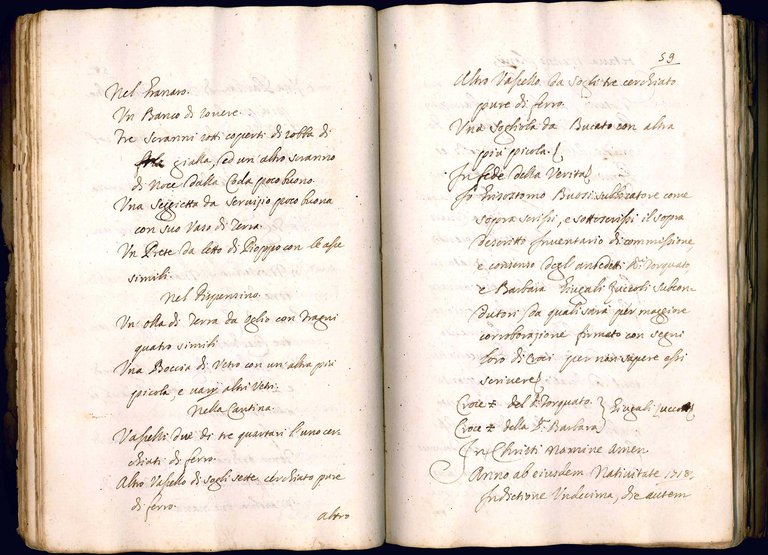 Nel Granaro.
Un Banco di rovere.
Tre scranni rotti coperti di robba di
gialla, ed un'altro scranno
di Noce dalla Coda poco buono.
Una Seggietta da Servizio poco buona
con suo Vaso di Terra.
Un Prete da letto di Pioppo con le asse
simili.
Nel Dispensino.
Un' olla di Terra da Oglio con
quatro simili
Una Boccia di Vetro con un'altra più
picola, e varij altri Vetri.
Nella Cantina.
Vaselli due di tre quartari l'uno cer-
chiati di ferro.
Altro Vasello di sogli sette cerchiato pure
di ferro.
altro
59
Altro Vasello da sogli tre cerchiato
pure di ferro.
Una Sogliola da Bucato con altra
più picola.
In fede della Verità
Io Grisostomo Buosi sublocatore come
sopra scrissi, e sottoscrissi il sopra
descritto Inventario di commissione,
e consenso degl'antedetti Torquato,
e Barbara Giugali Zuccoli subcon-
duttori da quali sarà per maggiore
corroborazione firmato con segni
loro di Croci per non sapere essi
scrivere
Croce + del Sr. Torquato
Croce + della Sra. Barbara
Giugali
In Christi Nomine Amen
Anno ab eiusdem Nativitate 1718,
Indictione Undecima, die autem